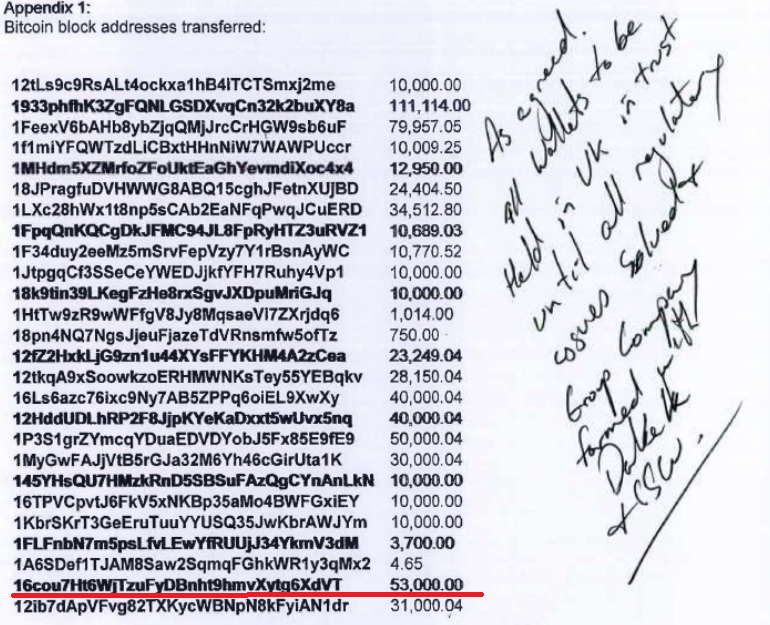 Appendix 1:
Bitcoin block addresses transferred:
12tLs9c9RsALt4ockxa1hB4iTCTSmxj2me 10,000.00
1933phfhK3ZgFQNLGSDXvqCn32k2buXY8a 111,114.00
1FeexV6bAHb8ybZjqQMjJrcCrHGW9sb6uF 79,957.05
1f1miYFQWTzdLiCBxtHHnNiW7WAWPUccr 10,009.25
1MHdm5XZMrfoZFoUktEaGhYevmdiXoc4x4 12,950.00
18JPragfuDVHWWG8ABQ15cghJFetnXUjBD 24,404.50
1LXc28hWx1t8np5sCAb2EaNFqPwqJCuERD 34,512.80
1FpqQnKQCgDkJFMC94JL8FpRyHTZ3uRVZ1 10,689.03
1F34duy2eeMz5mSrvFepVzy7Y1rBsnAyWC 10,770.52
1JtpgqCf3SSeCeYWEDJjkfYFH7Ruhy4Vp1 10,000.00
18k9tin39LKegFzHe8rxSgvJXDpuMriGJq 10,000.00
1HtTw9zR9wWFfgV8Jy8MqsaeVi7ZXrjdq6 1,014.00
18pn4NQ7NgsJjeuFjazeTdVRnsmfw5ofTz 750.00
12fZ2HxkLjG9zn1u44XYsFFYKHM4A2zCea 23,249.04
12tkqA9xSoowkzoERHMWNKsTey55YEBqkv 28,150.04
16Ls6azc76ixc9Ny7AB5ZPPq6oiEL9XwXy 40,000.04
12HddUDLhRP2F8JjpKYeKaDxxt5wUvx5nq 40,000.04
1P3S1grZYmcqYDuaEDVDYobJ5Fx85E9fE9 50,000.04
1MyGwFAJjVtB5rGJa32M6Yh46cGirUta1K 30,000.04
145YHsQU7HMzkRnD5SBSuFAzQgCYnAnLkN 10,000.00
16TPVCpvtJ6FkV5xNKBp35aMo4BWFGxiEY 10,000.00
1KbrSKrT3GeEruTuuYYUSQ35JwKbrAWJYm 10,000.00
1FLFnbN7m5psLfvLEwYfRUUjJ34YkmV3dM 3,700.00
1A6SDef1TJAM8Saw2SqmqFGhkWR1y3qMx2 4.65
16cou7Ht6WjTzuFyDBnht9hmvXytg6XdVT 53,000.00
12ib7dApVFvg82TXKycWBNpN8kFyiAN1dr 31,000.04
As agreed.
all wallets to be
Held in UK in trust
until all regulatory
solved +
Group Company
formed with
+ CSW.